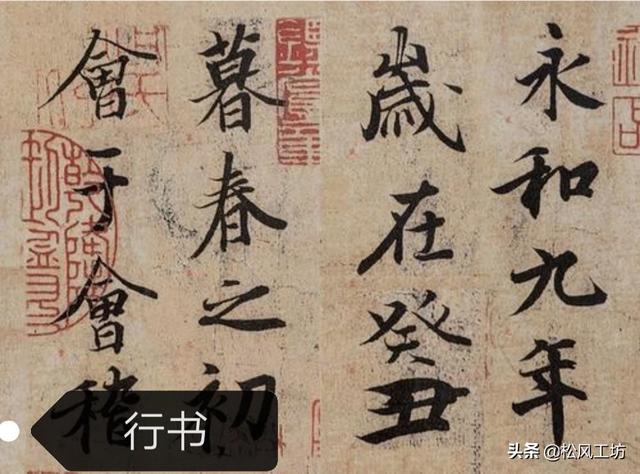 永和九年
歲在癸丑
暮春之初
會于會稽
行书
头条 @松风工坊